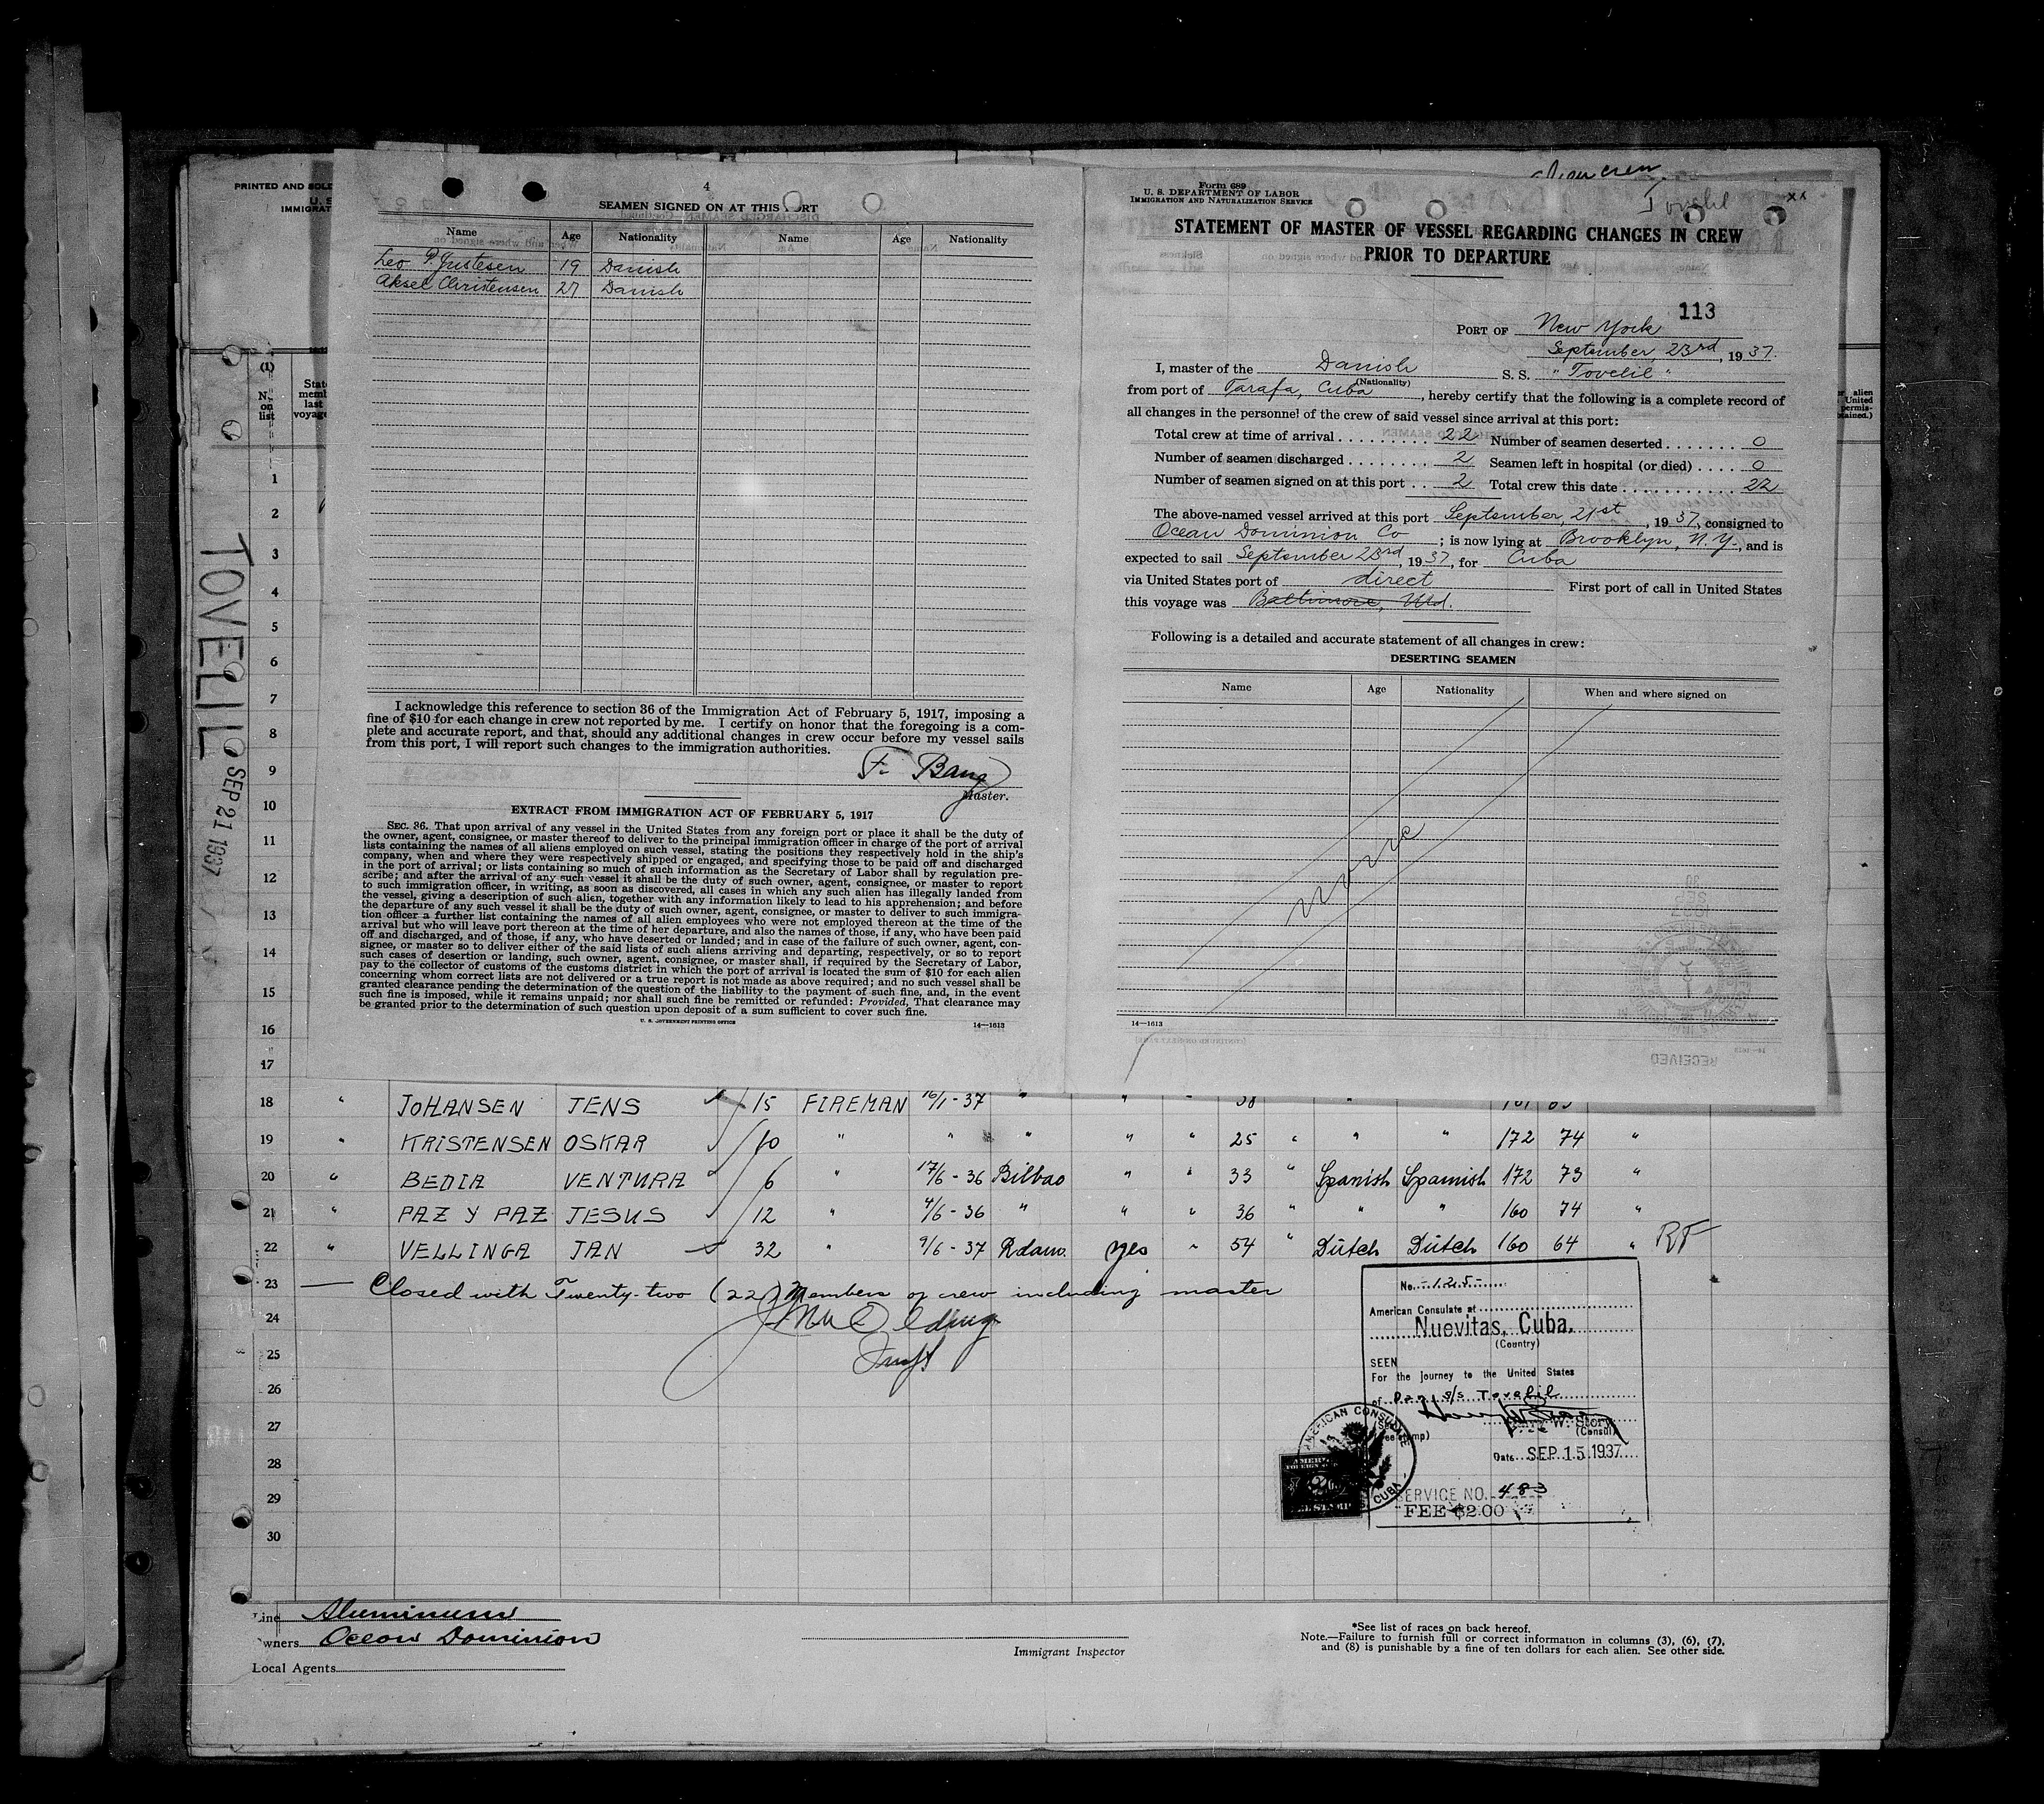 PRINTED AND SOLD
U. S
IMMIGRAT
4
SEAMEN SIGNED ON AT THIS PORT
Name Age Nationality Name Age Nationality
Leo P. Justesen 19 Danish
Aksel Christensen 27 Danish
I acknowledge this reference to section 36 of the Immigration Act of February 5, 1917, imposing a
fine of $10 for each change in crew not reported by me. I certify on honor that the foregoing is a com-
plete and accurate report, and that, should any additional changes in crew occur before my vessel sails
from this port, I will report such changes to the immigration authorities.
F. Bang
Master.
EXTRACT FROM IMMIGRATION ACT OF FEBRUARY 5, 1917
SEC. 36. That upon arrival of any vessel in the United States from any foreign port or place it shall be the duty of
the owner, agent, consignee, or master thereof to deliver to the principal immigration officer in charge of the port of arrival
lists containing the names of all aliens employed on such vessel, stating the positions they respectively hold in the ship's
company, when and where they were respectively shipped or engaged, and specifying those to be paid off and discharged
in the port of arrival; or lists containing so much of such information as the Secretary of Labor shall by regulation pre-
scribe; and after the arrival of any such vessel it shall be the duty of such owner, agent, consignee, or master to report
to such immigration officer, in writing, as soon as discovered, all cases in which any such alien has illegally landed from
the vessel, giving a description of such alien, together with any information likely to lead to his apprehension; and before
the departure of any such vessel it shall be the duty of such owner, agent, consignee, or master to deliver to such immigra-
tion officer a further list containing the names of all alien employees who were not employed thereon at the time of the
arrival but who will leave port thereon at the time of her departure, and also the names of those, if any, who have been paid
off and discharged, and of those, if any, who have deserted or landed; and in case of the failure of such owner, agent, con-
signee, or master so to deliver either of the said lists of such aliens arriving and departing, respectively, or so to report
such cases of desertion or landing, such owner, agent, consignee, or master shall, if required by the Secretary of Labor,
pay to the collector of customs of the customs district in which the port of arrival is located the sum of $10 for each alien
concerning whom correct lists are not delivered or a true report is not made as above required; and no such vessel shall be
granted clearance pending the determination of the question of the liability to the payment of such fine, and, in the event
such fine is imposed, while it remains unpaid; nor shall such fine be remitted or refunded: Provided, That clearance may
be granted prior to the determination of such question upon deposit of a sum sufficient to cover such fine.
U. S. GOVERNMENT PRINTING OFFICE 14—1613
Tovelil
Form 689
U. S. DEPARTMENT OF LABOR
IMMIGRATION AND NATURALIZATION SERVICE
STATEMENT OF MASTER OF VESSEL REGARDING CHANGES IN CREW
PRIOR TO DEPARTURE
113
PORT OF New York
September 23rd, 1937.
I, master of the Danish S. S. "Tovelil"
(Nationality)
from port of Tarafa, Cuba, hereby certify that the following is a complete record of
all changes in the personnel of the crew of said vessel since arrival at this port:
Total crew at time of arrival 22 Number of seamen deserted 0
Number of seamen discharged 2 Seamen left in hospital (or died) 0
Number of seamen signed on at this port 2 Total crew this date 22
The above-named vessel arrived at this port September, 21st, 1937, consigned to
Ocean Dominion Co; is now lying at Brooklyn, N.Y., and is
expected to sail September 23rd, 1937, for Cuba
via United States port of direct First port of call in United States
this voyage was Baltimore, Md.
Following is a detailed and accurate statement of all changes in crew:
DESERTING SEAMEN
Name Age Nationality When and where signed on
none
14—1613
RECEIVED
TOVELIL SEP 21 1937
(1)
No.
on
list
State
memb
last
voyage
r alien
United
permis-
btained.)
1
2
3
4
5
6
7
8
9
10
11
12
13
14
15
16
17
18 " JOHANSEN JENS 15 FIREMAN 16/1-37 " " 38 "
19 " KRISTENSEN OSKAR 10 " " " " " 25 " " " 172 74 "
20 " BEDIA VENTURA 6 " 17/6-36 Bilbao " " 33 " Spanish Spanish 172 73 "
21 " PAZ Y PAZ JESUS 12 " 4/6-36 " " " 36 " " " 160 74 "
22 " VELLINGA JAN 32 " 9/6-37 Rdam. yes " 54 " Dutch Dutch 160 64 " RF
23 — Closed with Twenty-two (22) Members of crew including master
24
25
26
27
28
29
30
No. -125-
American Consulate at
Nuevitas, Cuba.
(Country)
SEEN
For the journey to the United States
of Dan s/s Tovelil
Harry W. Story
Vice (Consul)
Date SEP 15 1937
SERVICE NO. 483
FEE $2.00
AMERICAN CONSULATE
CUBA
Line Aluminum
Owners Ocean Dominion
Local Agents
Immigrant Inspector
*See list of races on back hereof.
Note.—Failure to furnish full or correct information in columns (3), (6), (7),
and (8) is punishable by a fine of ten dollars for each alien. See other side.